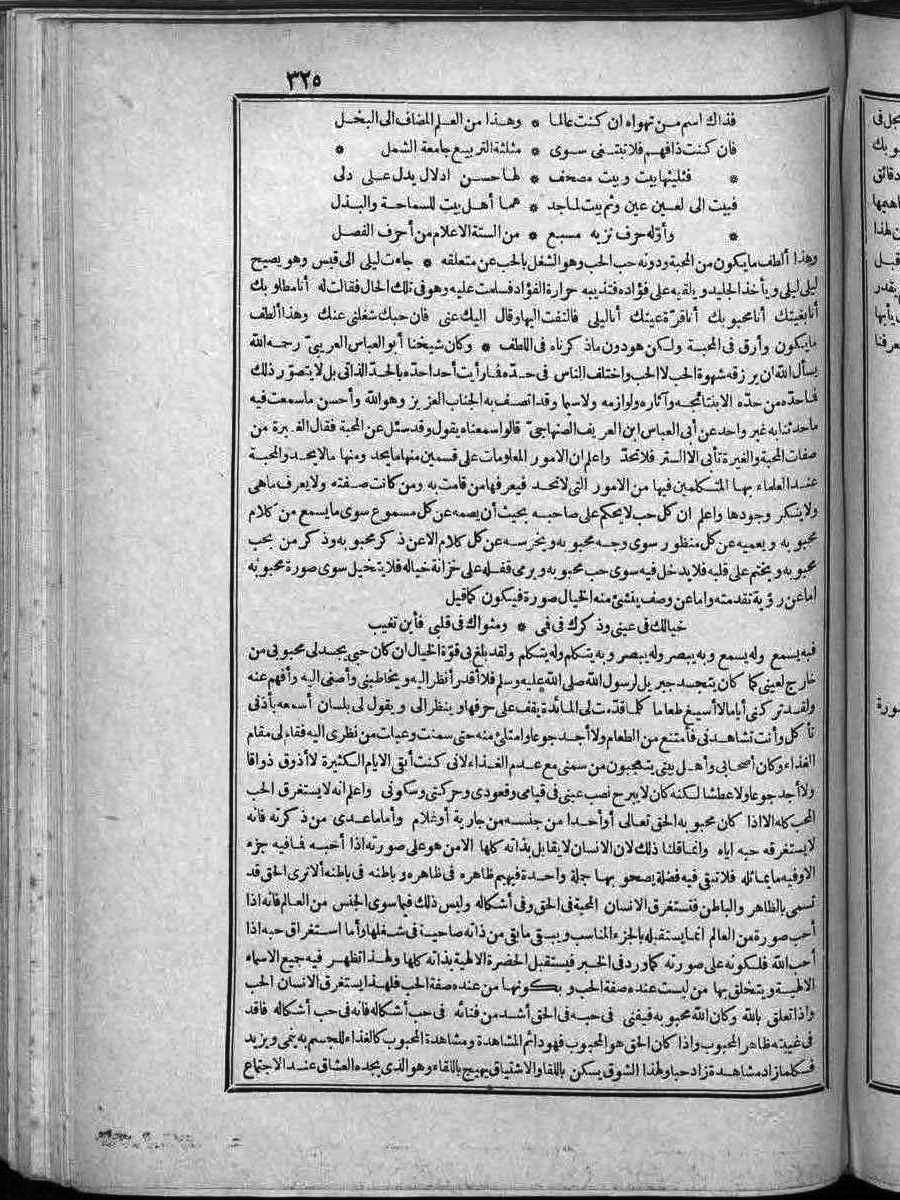 ٣٢٥
فذاك اسم من تهواه ان كنت عالما * وهذا من العلم المضاف الى البخل
فان كنت ذا فهم فلا تبتغى سوى * مثلثة التربيع جامعة الشمل *
* فثلثها بيت وبيت مصحف * لها حسن ادلال يدل على دلى
فبيت الى لعين عين وثم بيت لماجد * هما أهل بيت للسماحة والبذل
* وأوله حرف نزيه مسبع * من الستة الاعلام من أحرف الفصل
وهذا ألطف ما يكون من المحبة ودونه حب الحب وهو الشغل بالحب عن متعلقه * جاءت ليلى الى قيس وهو يصيح
ليلى ليلى ويأخذ الجليد ويلقيه على فؤاده فتذيبه حرارة الفؤاد فسلمت عليه وهو فى تلك الحال فقالت له أنا مطلوبك
أنا بغيتك أنا محبوبك أنا قرة عينك أنا ليلى فالتفت اليها وقال اليك عنى فان حبك شغلنى عنك وهذا ألطف
ما يكون وأرق فى المحبة ولكن هو دون ما ذكرناه فى اللطف * وكان شيخنا أبو العباس العريبىّ رحمه الله
يسأل الله ان يرزقه شهوة الحب لا الحب واختلف الناس فى حدّه فما رأيت أحدا حدّه بالحدّ الذاتى بل لا يتصوّر ذلك
فما حدّه من حدّه الا بنتائجه وآثاره ولوازمه ولاسيما وقد اتصف به الجناب العزيز وهو الله وأحسن ما سمعت فيه
ما حدثنا به غير واحد عن أبى العباس ابن العريف الصنهاجىّ قالوا سمعناه يقول وقد سئل عن المحبة فقال الغيرة من
صفات المحبة والغيرة تأبى الا الستر فلا تحدّ واعلم ان الامور المعلومات على قسمين منها ما يحد ومنها ما لا يحد والمحبة
عند العلماء بها المتكلمين فيها من الامور التى لا تحد فيعرفها من قامت به ومن كانت صفته ولا يعرف ما هى
ولا ينكر وجودها واعلم ان كل حب لا يحكم على صاحبه بحيث أن يصمه عن كل مسموع سوى ما يسمع من كلام
محبوبه ويعميه عن كل منظور سوى وجه محبوبه ويخرسه عن كل كلام الا عن ذكر محبوبه وذكر من يحب
محبوبه ويختم على قلبه فلا يدخل فيه سوى حب محبوبه ويرمى قفله على خزانة خياله فلا يتخيل سوى صورة محبوبه
اما عن رؤية تقدمته واما عن وصف ينشئ منه الخيال صورة فيكون كما قيل
خيالك فى عينى وذكرك فى فمى * ومثواك فى قلبى فأين تغيب
فبه يسمع وله يسمع وبه يبصر وله يبصر وبه يتكلم وله يتكلم ولقد بلغ بى قوّة الخيال ان كان حبى يجسد لى محبوبى من
خارج لعينى كما كان يتجسد جبريل لرسول الله صلى الله عليه وسلم فلا أقدر أنظر اليه ويخاطبنى وأصغى اليه وأفهم عنه
ولقد تركنى أياما لا أسيغ طعاما كلما قدّمت لى المائدة يقف على حرفها وينظر الى ويقول لى بلسان أسمعه بأذنى
تأكل وأنت تشاهدنى فأمتنع من الطعام ولا أجد جوعا وامتلئ منه حتى سمنت وعبلت من نظرى اليه فقام لى مقام
الغذاء وكان أصحابى وأهل بيتى يتعجبون من سمنى مع عدم الغذاء لانى كنت أبقى الايام الكثيرة لا أذوق ذواقا
ولا أجد جوعا ولا عطشا لكنه كان لا يبرح نصب عينى فى قيامى وقعودى وحركتى وسكونى واعلم انه لا يستغرق الحب
المحب كله الا اذا كان محبوبه الحق تعالى أو أحدا من جنسه من جارية أو غلام وأما ما عدى من ذكرته فانه
لا يستغرقه حبه اياه وانما قلنا ذلك لان الانسان لا يقابل بذاته كلها الا من هو على صورته اذا أحبه فما فيه جزء
الا وفيه ما يماثله فلا تبقى فيه فضلة يصحو بها جملة واحدة فيهيم ظاهره فى ظاهره وباطنه فى باطنه ألا ترى الحق قد
تسمى بالظاهر والباطن فتستغرق الانسان المحبة فى الحق وفى أشكاله وليس ذلك فيما سوى الجنس من العالم فانه اذا
أحب صورة من العالم انما يستقبله بالجزء المناسب ويبقى ما بقى من ذاته صاحية فى شغلها وأما استغراق حبه اذا
أحب الله فلكونه على صورته كما ورد فى الخبر فيستقبل الحضرة الالهية بذاته كلها ولهذا تظهر فيه جميع الاسماء
الالهية ويتخلق بها من ليست عنده صفة الحب ويكونها من عنده صفة الحب فلهذا يستغرق الانسان الحب
واذا تعلق بالله وكان الله محبوبه فيفنى فى حبه فى الحق أشد من فنائه فى حب أشكاله فانه فى حب أشكاله فاقد
فى غيبته ظاهر المحبوب واذا كان الحق هو المحبوب فهو دائم المشاهدة ومشاهدة المحبوب كالغذاء للجسم به ينمى ويزيد
فكلما زاد مشاهدة زاد حبا ولهذا الشوق يسكن باللقاء والاشتياق يهيج باللقاء وهو الذى يجده العشاق عند الاجتماع